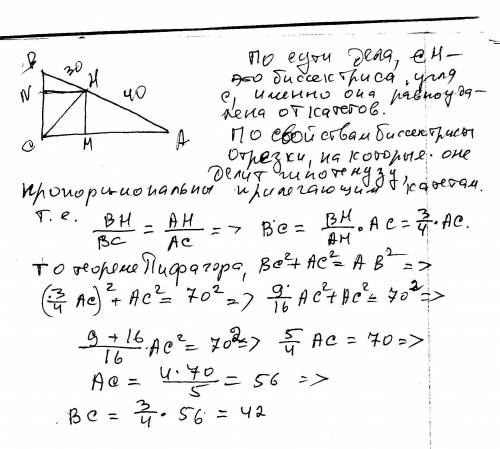 B
30
N
H
40
C
M
A
По сути дела, CH-
это биссектриса угла
C, именно она равноуда-
лена от катетов.
По свойствам биссектрисы
отрезки, на которые она
делит гипотенузу,
пропорциональны прилегающим катетам.
Т.е. BH/BC = AH/AC => BC = BH/AH · AC = 3/4 · AC.
По теореме Пифагора, BC² + AC² = AB² =>
(3/4 AC)² + AC² = 70² => 9/16 AC² + AC² = 70² =>
9+16/16 · AC² = 70² => 5/4 AC = 70 =>
AC = 4·70/5 = 56 =>
BC = 3/4 · 56 = 42